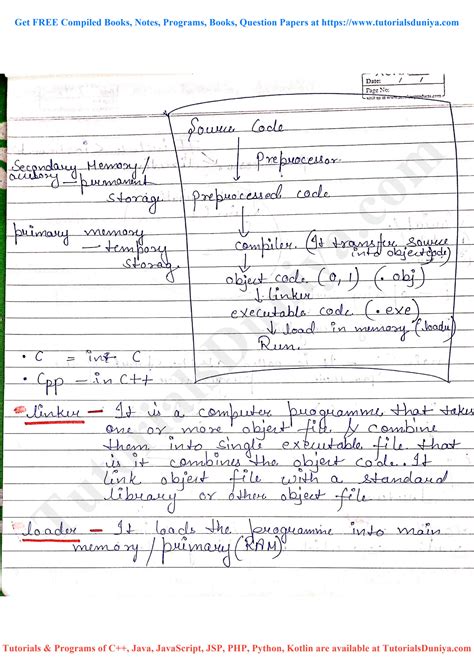 Get FREE Compiled Books, Notes, Programs, Books, Question Papers at https://www.tutorialsduniya.com
Date: / /
Page No:
Source Code
↓ Preprocessor
Secondary Memory /
— permanent
Storage
preprocessed code
primary memory
— tempory
Storag
compiler (It transfer source
into object code)
object code (0, 1) (.obj)
↓ linker
executable code (.exe)
↓ load in memory (loader)
Run.
• C = in C
• Cpp – in C++
linker — It is a computer programme that takes
one or more object file & combine
them into single executable file that
is it combines the object code. It
link object file with a standard
library or other object file
loader — It loads the programme into main
memory / primary (RAM)
TutorialsDuniya.com
Tutorials & Programs of C++, Java, JavaScript, JSP, PHP, Python, Kotlin are available at TutorialsDuniya.com